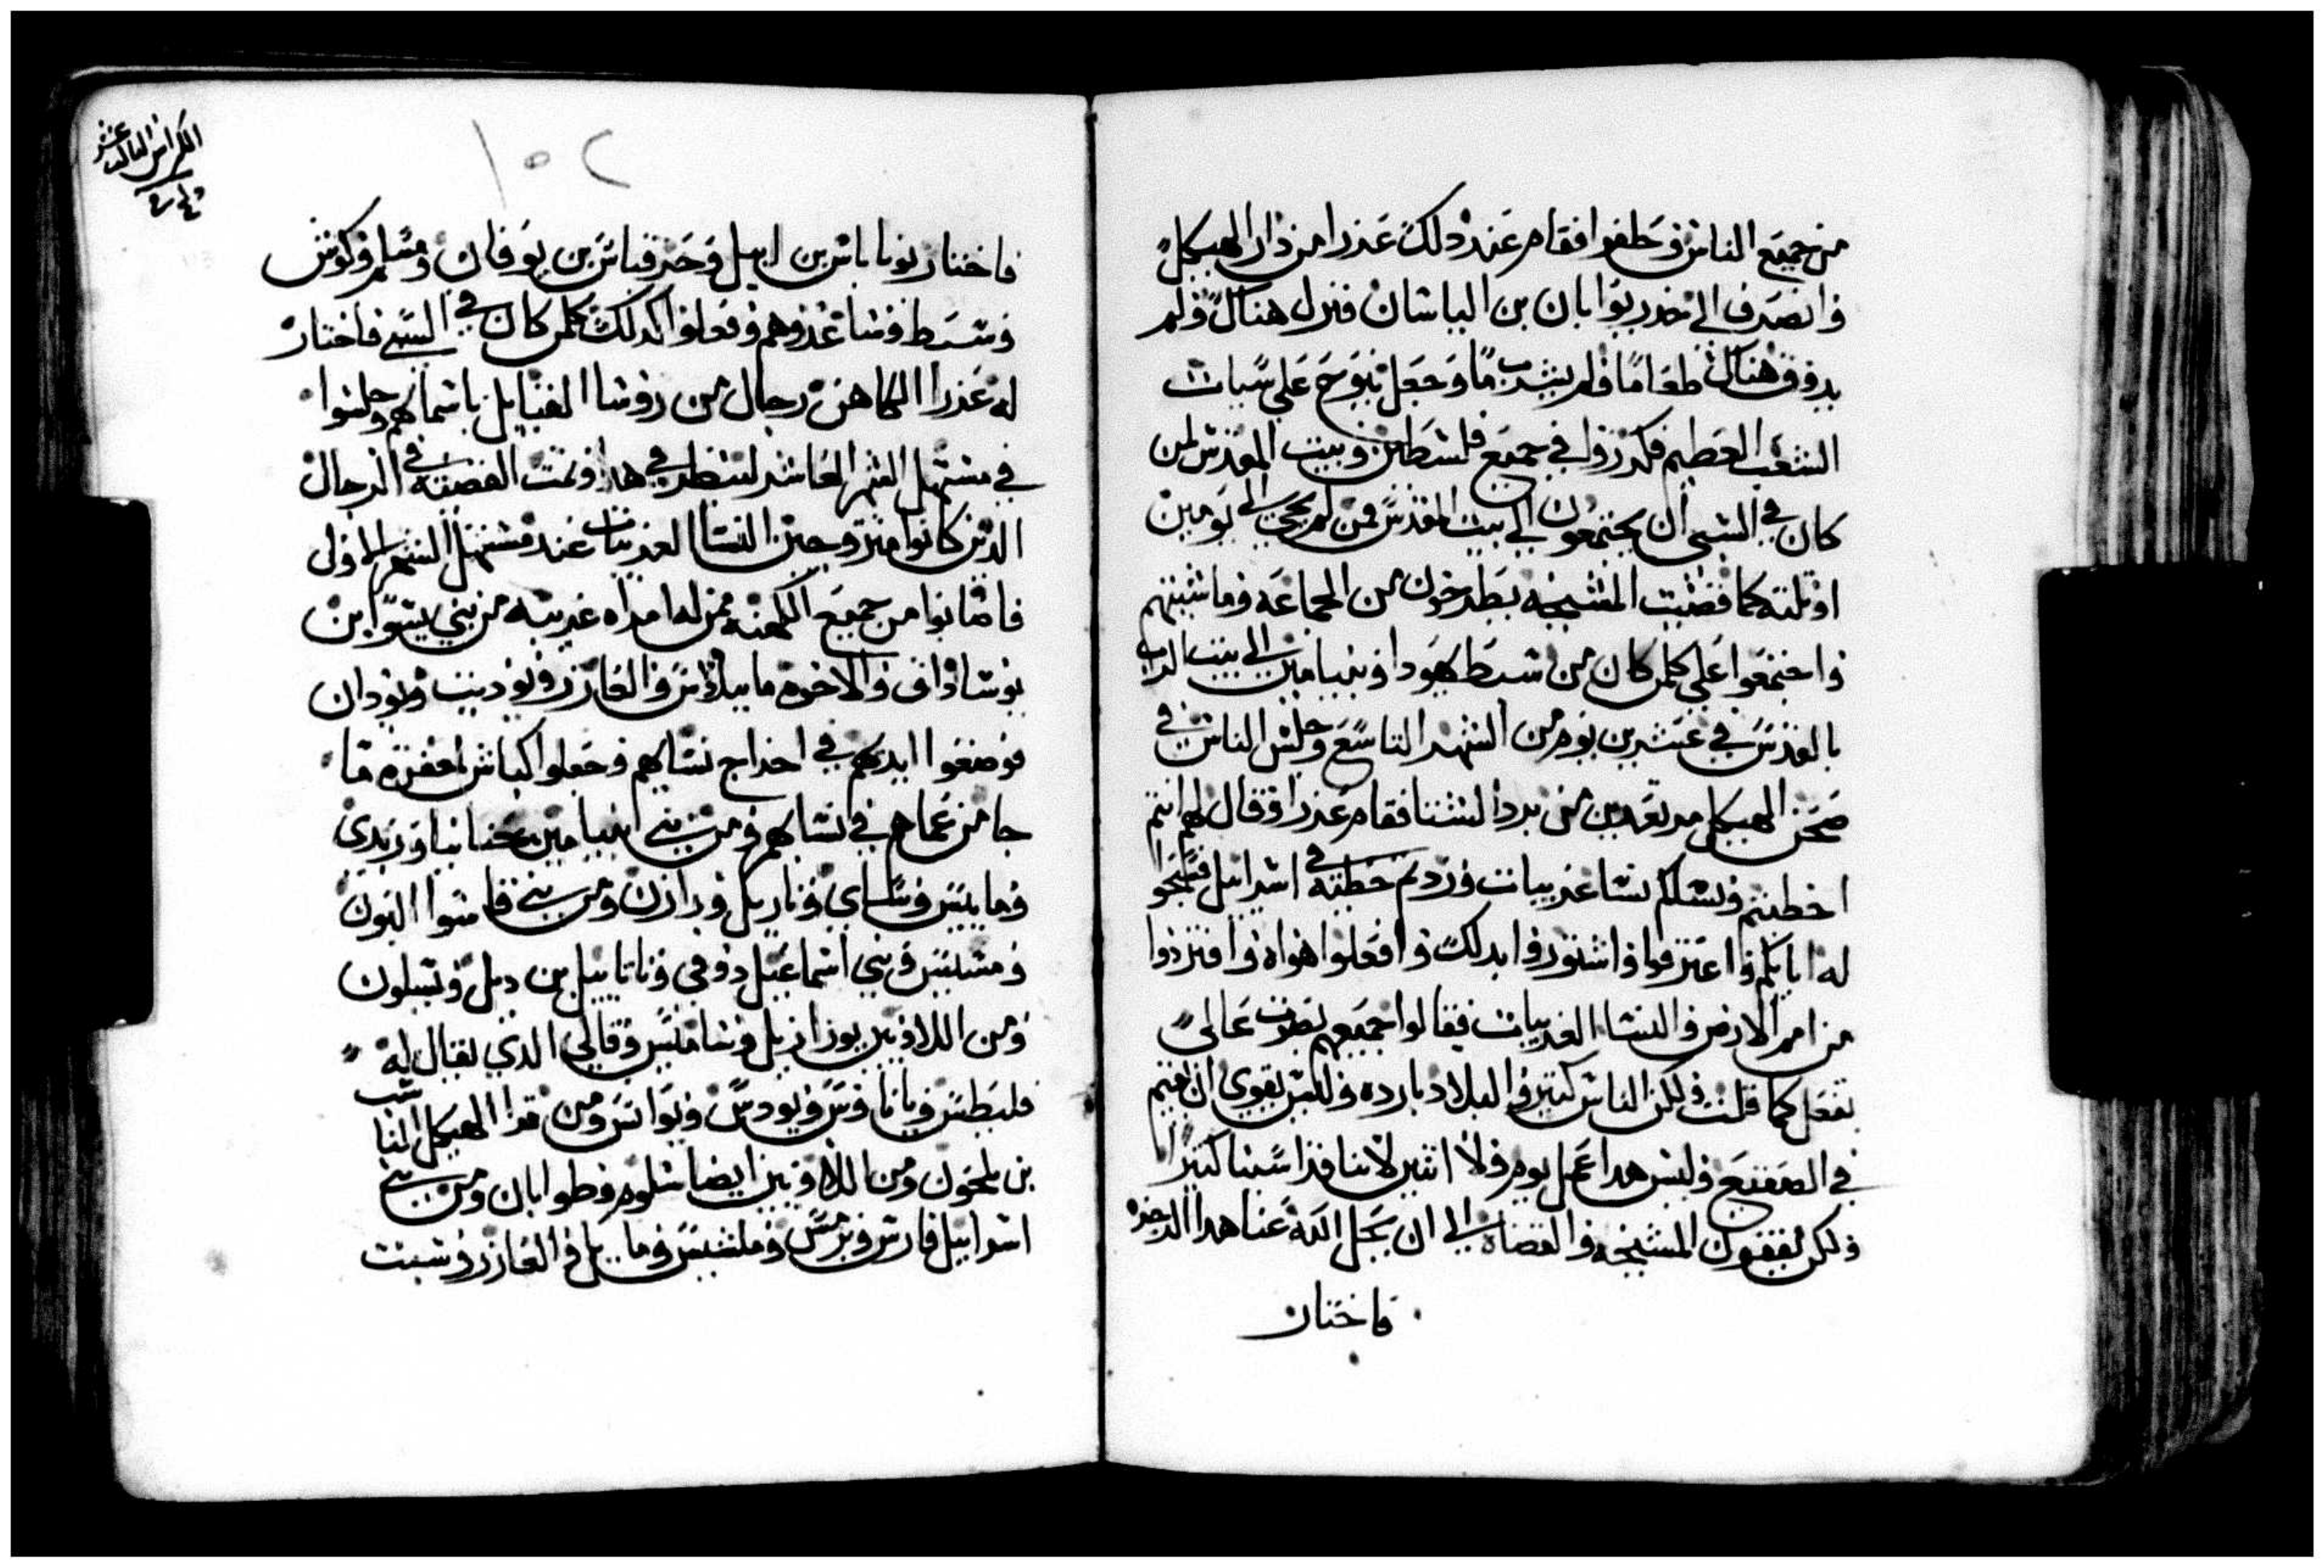 من جميع الناس وحلفوا فقام عند ذلك عذرا من دار الهيكل
وانصرف الى خدر يوابان بن الياشان فنزل هناك ولم
يدوق هناك طعاما ولم يشرب ما وجعل ينوح على سيات
الشعب العظيم فكرزوا في جميع فلسطين وبيت المقدس لمن
كان في السبي ان يجتمعون الى بيت المقدس فمن لم يجي الى يومين
او ثلثه كما قضيت المشيخه يطردون من الجماعه وماشيتهم
واجتمعوا على كلمن كان من سبط يهودا وبنيامين الى بيت الرب
بالقدس في عشرين يوم من الشهر التاسع وجلس الناس في
صحن الهيكل مرتعدين من برد الشتا فقام عذرا وقال لهم انتم
اخطيتم ونساكم نسا غريبات وزدتم خطيه في اسراييل فسبحوا
له ابايكم واعترفوا واشتوروا بدلك وافعلوا هواه وافترزوا
من امر الارض والنسا الغريبات فقالوا جميعهم بصوت عالي
نفعل كما قلت ولكن الناس كتير والبلاد بارده وليس نقوى ان نقيم
في الصقيع وليس هدا عمل يوم ولا اتنين لاننا قد اسينا كتيرا
ولكن يقفون المشيخه والقضاه الى ان يحل الله عنا هدا الرجز
فاختار
١٠٢
الكراس التالت عشر
فاختار يوناباش بن ابيل وحزقياس بن يوقان ومسلم وكوش
وسبط وساعدوهم وفعلوا كدلك كلمن كان في السبي فاختار
له عذرا الكاهن رجال من روسا القبايل باسماهم وجلسوا
في مستهل الشهر العاشر لينظر في هدا وتمت القضيه في الرجال
الدين كانوا متزوجين النسا الغريبات عند مستهل الشهر الاولى
فاصابوا من جميع الكهنه ممن له امراه غريبه من بني يسوا بن
يوساداق والاخوه ماسيلاوس والعازر ويوديت ويودان
فوضعوا ايديهم في اخراج نساهم وجعلوا كباش لمغفرة ما
جا من عماهم في نساهم ومن بني امينا مين عنانيا وزبدى
ومانيس وساماي وناريل وداران ومن بني فاسوا اليون
ومسيس وبني اسماعيل دوقى وناتاييل بن ديل وتسلون
ومن اللاويين يوزازيل وسامس وقالي الدي يقال له
فليطس وياناوس ويودس ويواس ومن قرا الهيكل الياسب
بن بلمحون ومن اللاويين ايضا سلوم وطوابان ومن بني
اسراييل فارس وبرمس وملشيس ومايل والعازر وشبيت